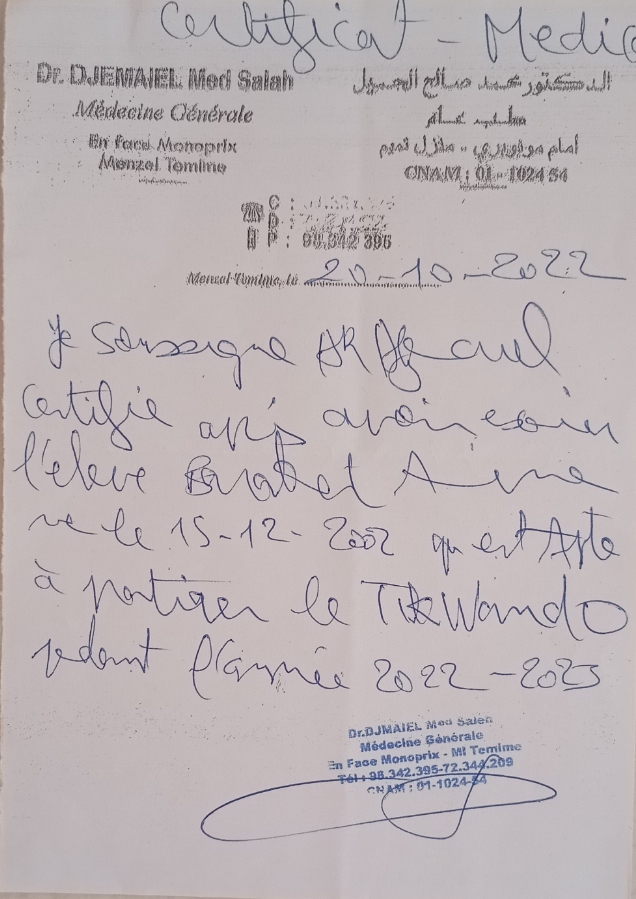 Certificat - Medic
Dr. DJEMAIEL Med Salah
Médecine Générale
En Face Monoprix
Menzel Temime
الدكتور محمد صالح الجميل
طبيب عام
أمام مونوبري - منزل تميم
CNAM : 01 - 1024 54
C :
D :
P : 98.342 395
Menzel Temime, le 20-10-2022
Je soussigné
certifie après avoir examiner
l'élève
né le 15-12-2002 qu est Apte
à pratiquer le TikWando
pedant l'année 2022-2023
Dr.DJMAIEL Med Saleh
Médecine Générale
En Face Monoprix - Ml Temime
Tél : 98.342.395-72.344.209
CNAM : 01-1024-54